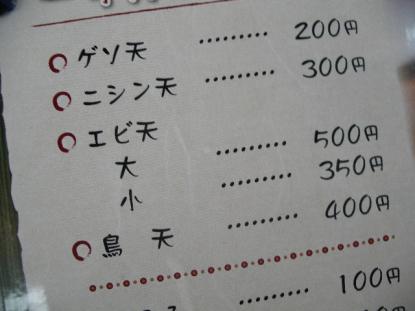 ゲソ天 ……… 200円
ニシン天 ……… 300円
エビ天
大 ……… 500円
小 ……… 350円
鳥 天 ……… 400円
……… 100円